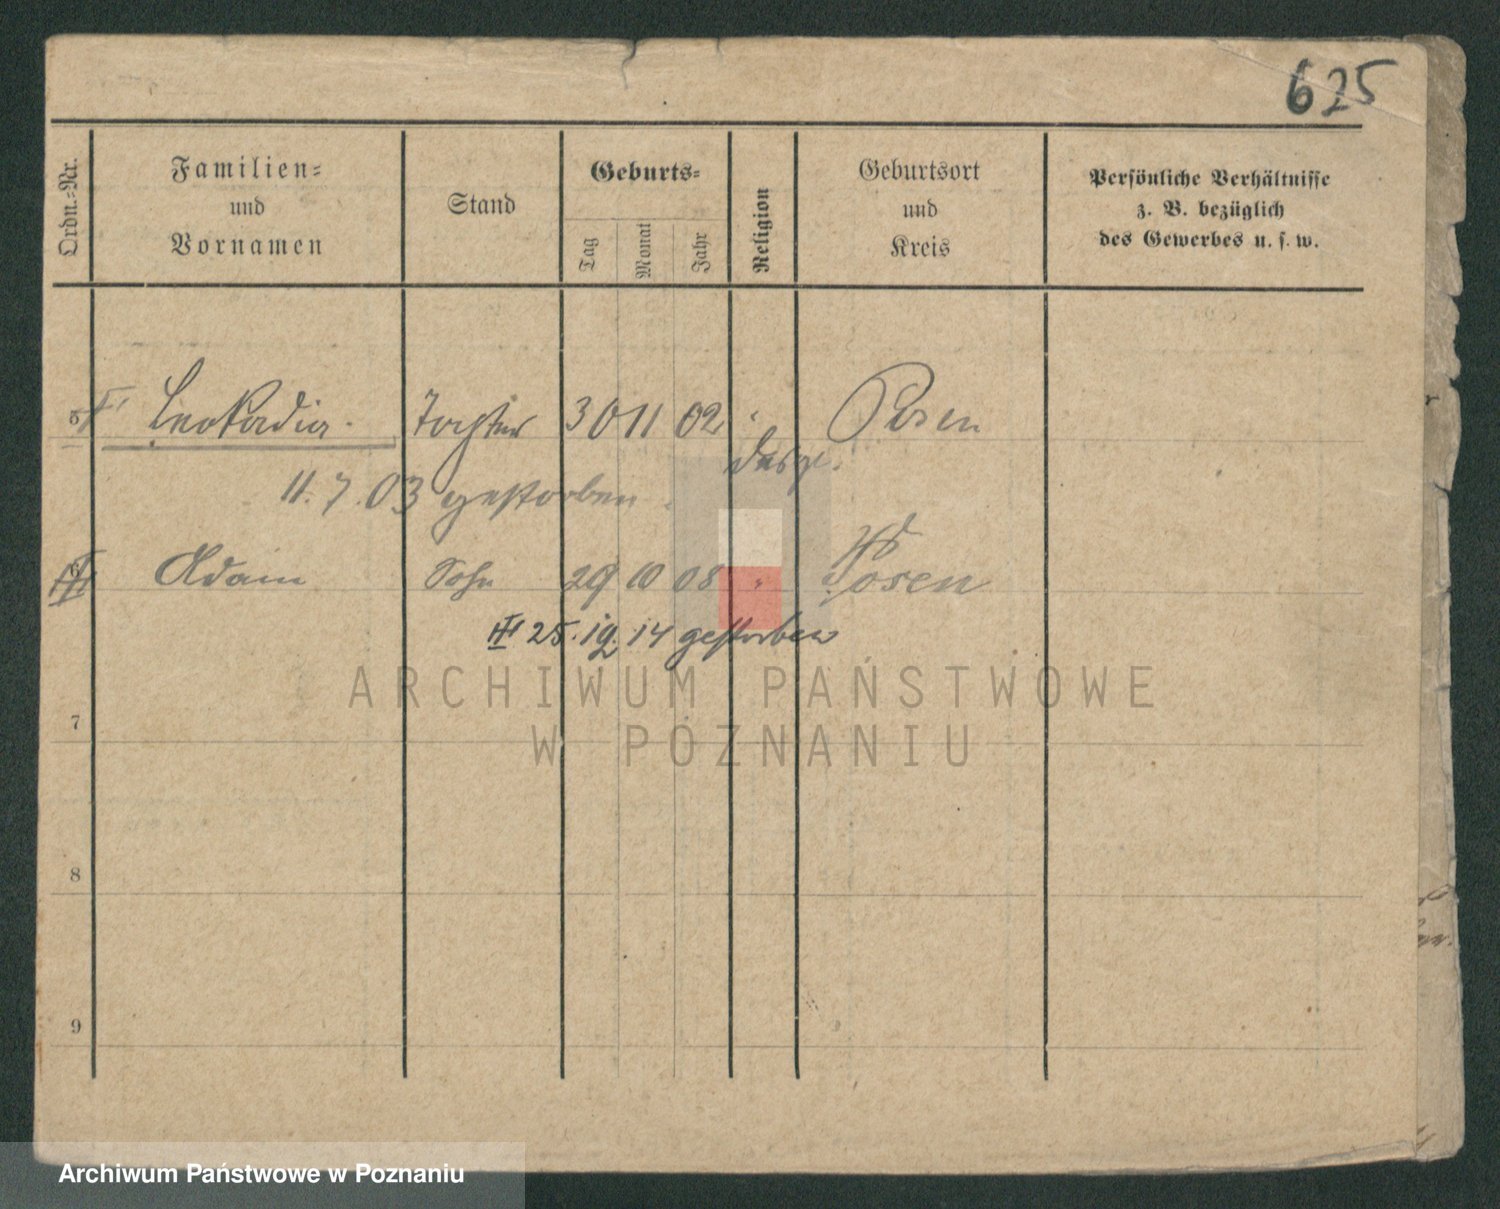 625
Ordn.-Nr.
Familien-
und
Vornamen
Stand
Geburts-
Tag
Monat
Jahr
Religion
Geburtsort
und
Kreis
Persönliche Verhältnisse
z. B. bezüglich
des Gewerbes u. s. w.
5 Leokadia. Tochter 30 11 02 Posen
desgl.
11. 7. 03 gestorben.
6 Adam Sohn 29 10 08 " Posen
25. 14 gestorben
ARCHIWUM PAŃSTWOWE
W POZNANIU
7
8
9
Archiwum Państwowe w Poznaniu